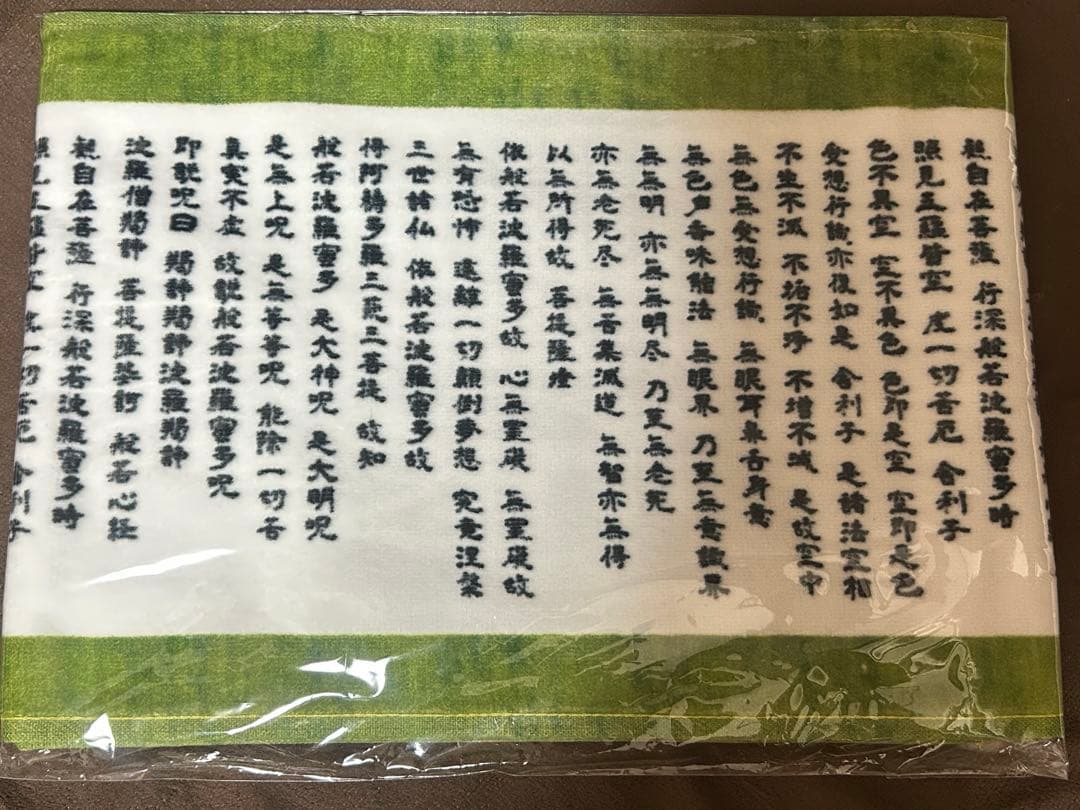 観自在菩薩 行深般若波羅蜜多時
照見五蘊皆空 度一切苦厄 舎利子
色不異空 空不異色 色即是空 空即是色
受想行識亦復如是 舎利子 是諸法空相
不生不滅 不垢不浄 不増不減 是故空中
無色無受想行識 無眼耳鼻舌身意
無色声香味触法 無眼界 乃至無意識界
無無明 亦無無明尽 乃至無老死
亦無老死尽 無苦集滅道 無智亦無得
以無所得故 菩提薩埵
依般若波羅蜜多故 心無罣礙 無罣礙故
無有恐怖 遠離一切顛倒夢想 究竟涅槃
三世諸仏 依般若波羅蜜多故
得阿耨多羅三藐三菩提 故知
般若波羅蜜多 是大神呪 是大明呪
是無上呪 是無等等呪 能除一切苦
真実不虚 故説般若波羅蜜多呪
即説呪曰 羯諦羯諦波羅羯諦
波羅僧羯諦 菩提薩婆訶 般若心経
観自在菩薩 行深般若波羅蜜多時
照見五蘊皆空 度一切苦厄 舎利子